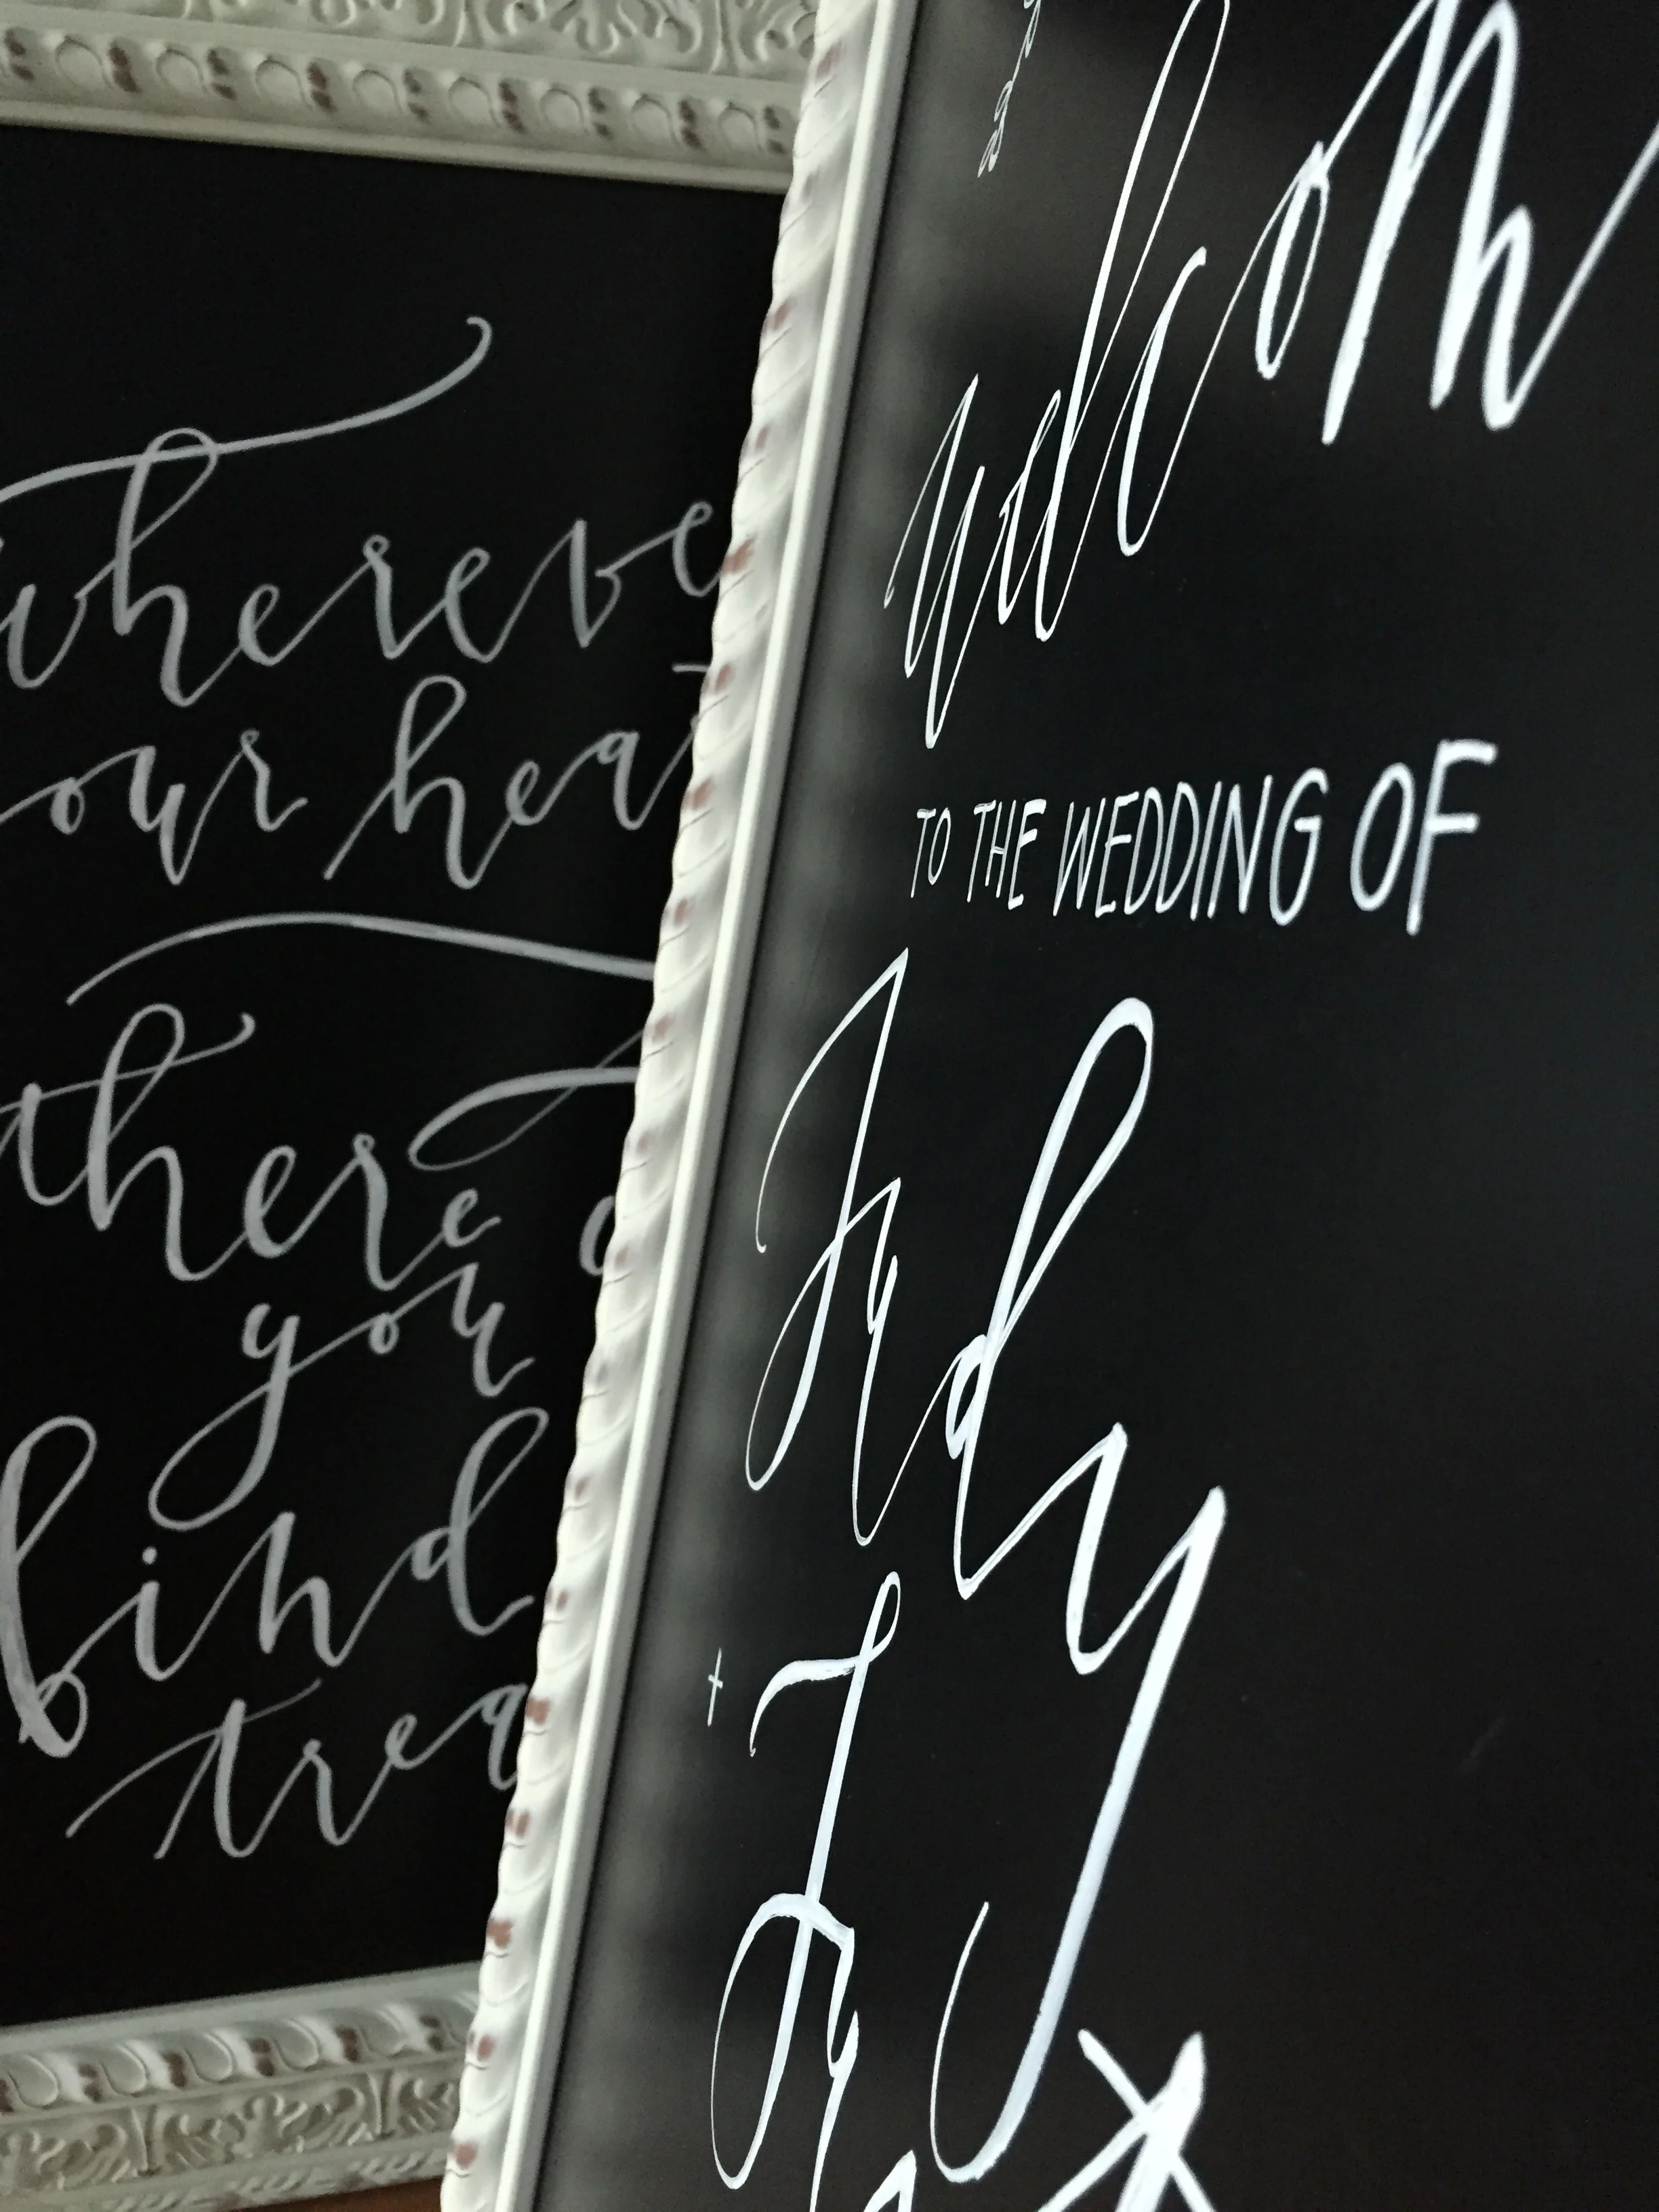 whereve
our hea
there
you
find
trea
welcom
TO THE WEDDING OF
Judy
+